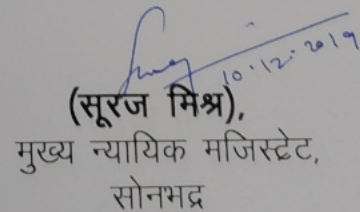 10.12.2019
(सूरज मिश्र),
मुख्य न्यायिक मजिस्ट्रेट,
सोनभद्र